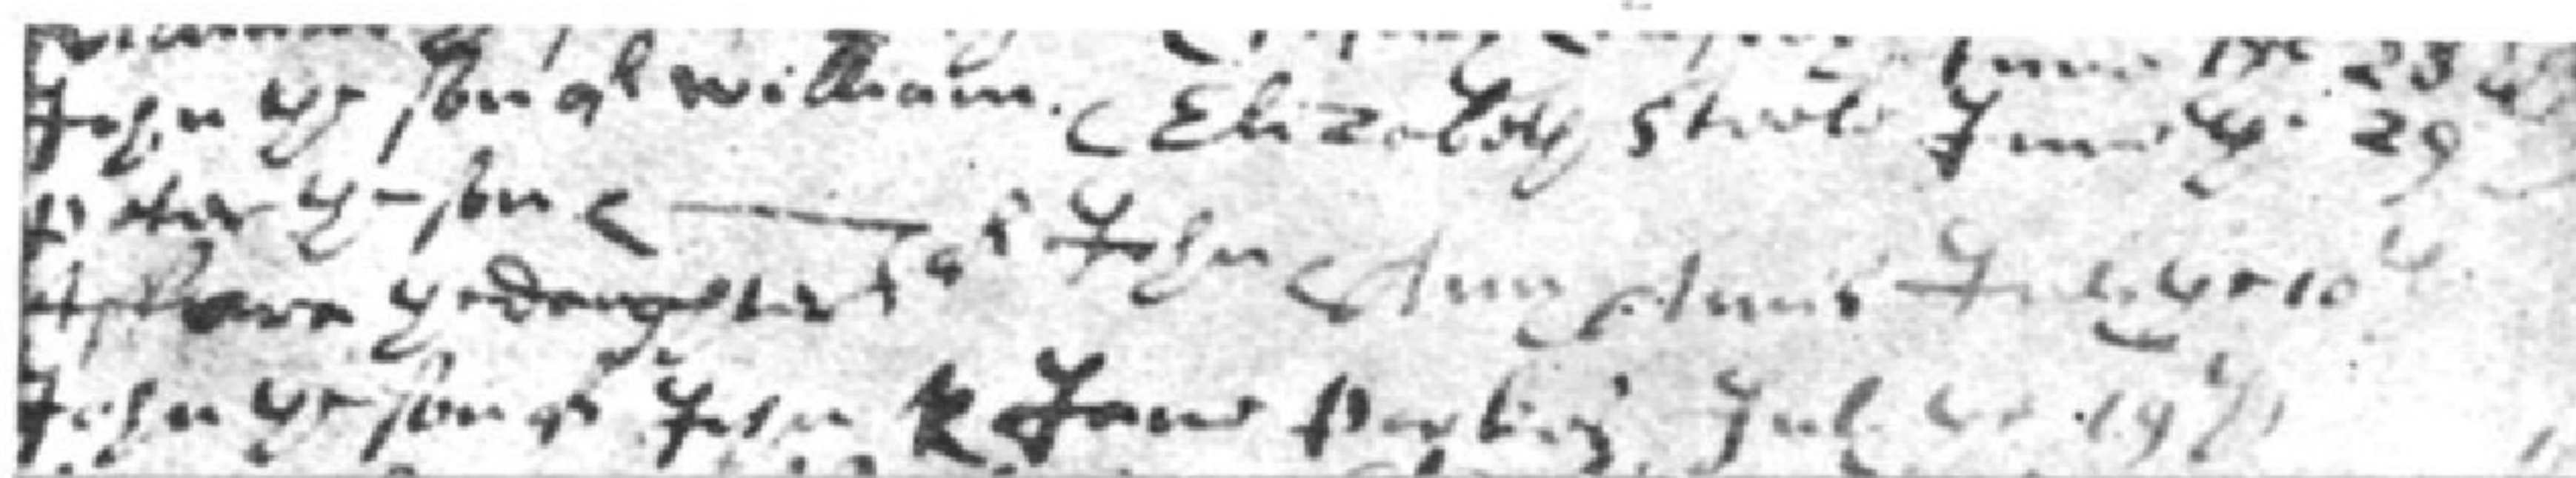 June ye 23
John ye son of William & Elizabeth Steele June ye 29
Peter ye son &
ye daughter of John & Ann July ye 10th
John ye son of John & Jane Jul ye 19th